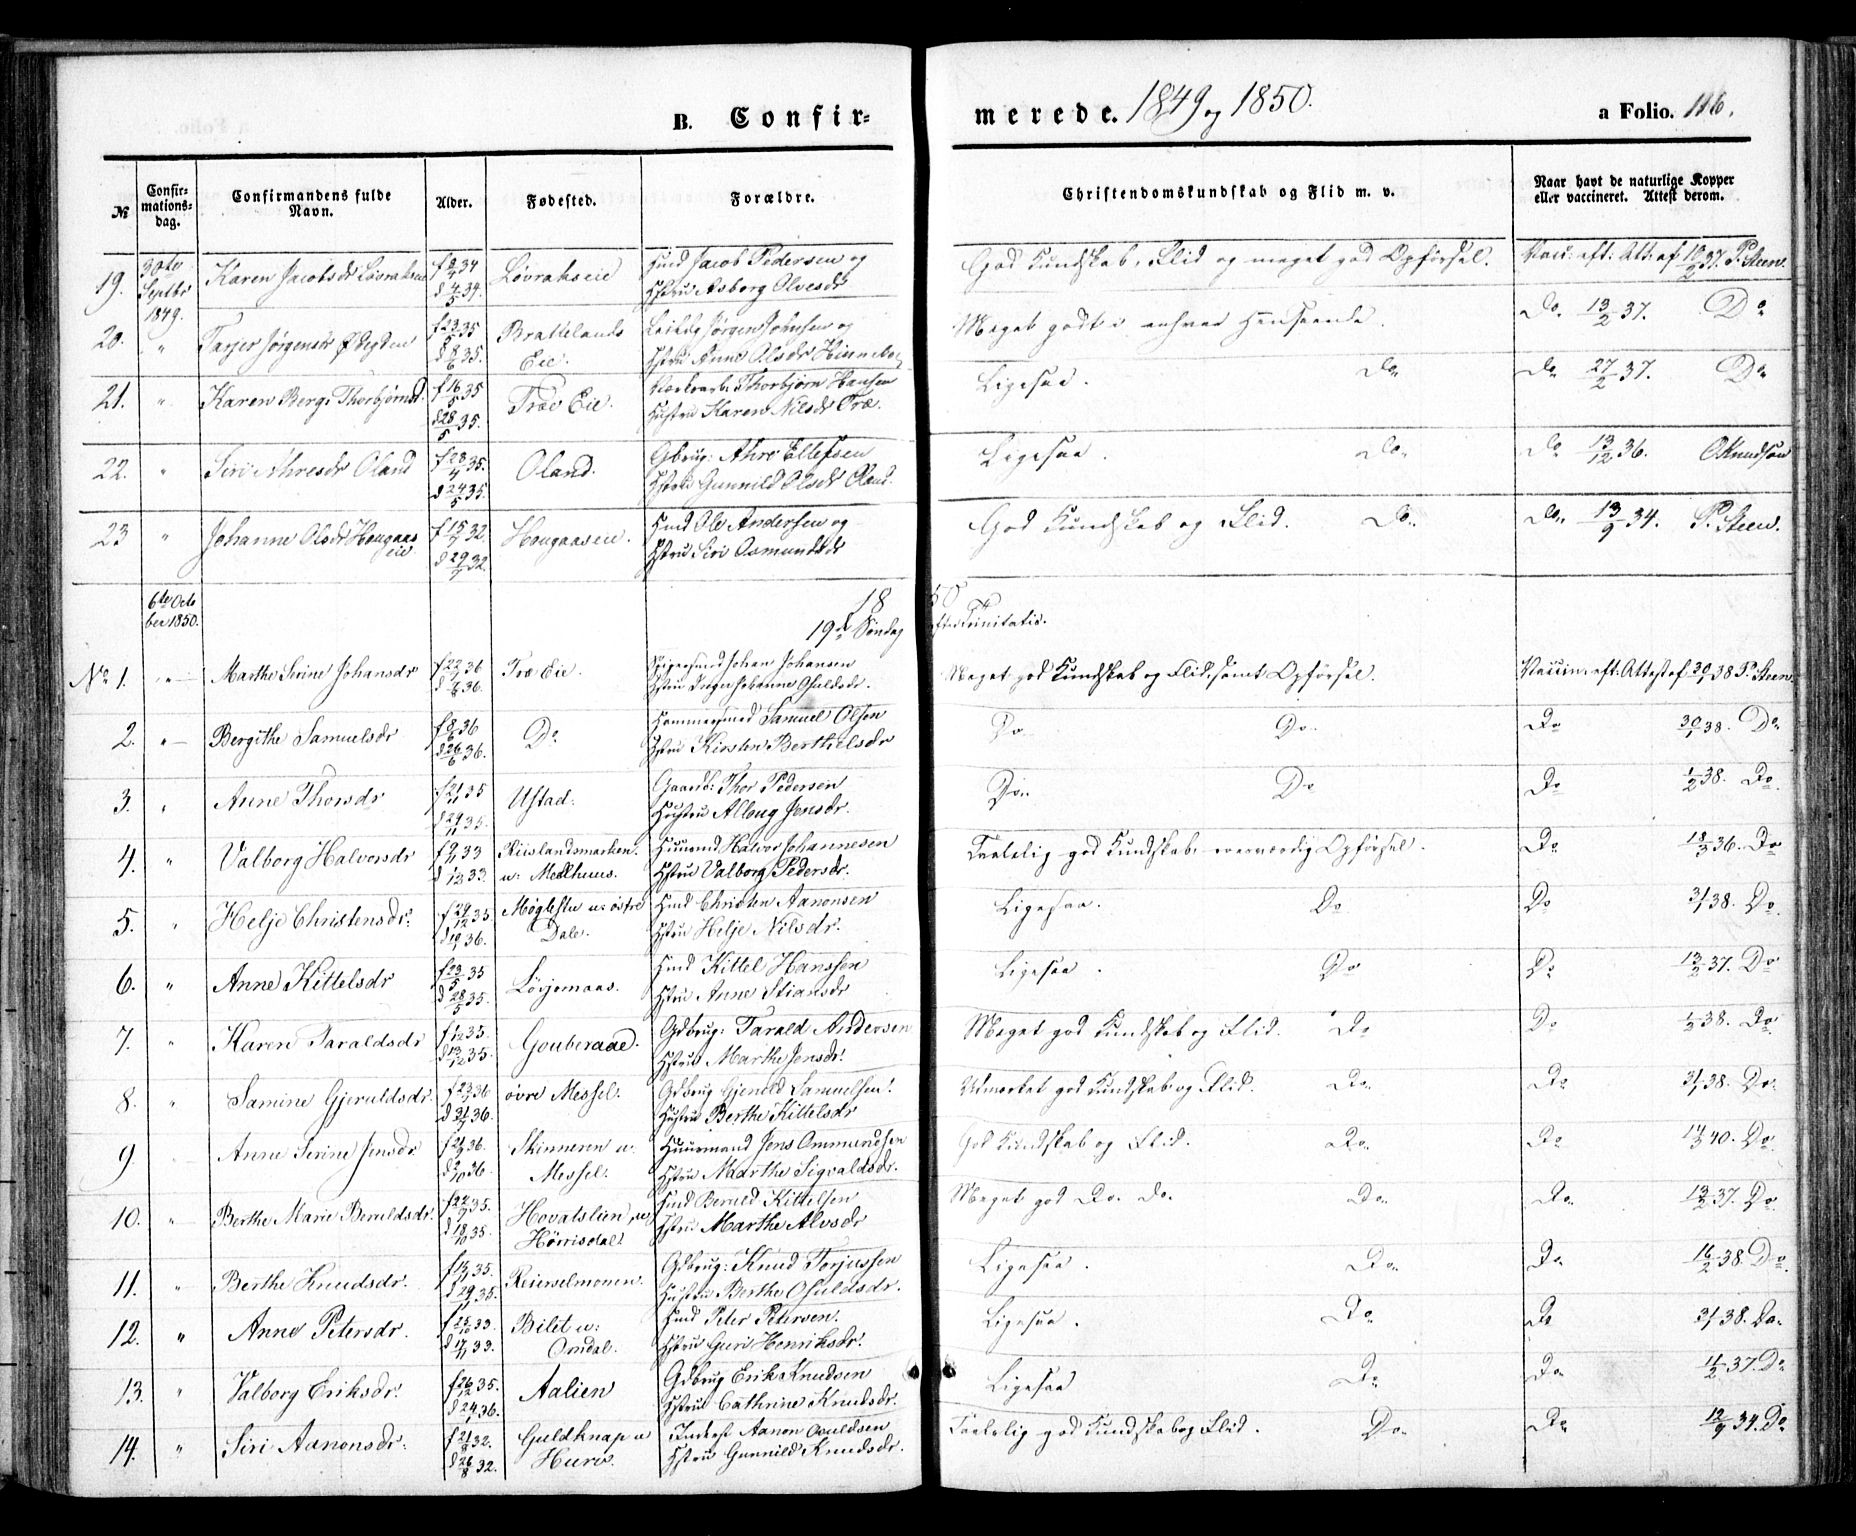 B. Confir- merede. 1849 og 1850. a Folio. 116.
№ Confir-mations-dag. Confirmandens fulde Navn. Alder. Fødested. Forældre. Christendomskundskab og Flid m. v. Naar havt de naturlige Kopper eller vaccineret. Attest derom.
19. 30te Septbr 1849. Karen Jacobsdr Løvrakseie f 8/4 34 Løvrakseie Hmd Jacob Pedersen og God Kundskab, Flid og meget god Opførsel. Vacc: eft: Att: af 10/2 37. P. Steen.
d 4/5 34. Hstru Asborg Olvesdr
20. " Tarjer Jørgensdr f 23/5 35 Brattelands Jørgen Johnsen og Meget godt i enhver Henseende. Do. 13/2 37. Do
d 8/6 35. Eie. Hstru Anne Olsdr
21. " Karen Berg. Thorbjørnsd. f 16/5 35 Træe Eie. Thorbjørn Hansen Ligesaa. Do Do 27/2 37. Do
d 28/5 35. Hustru Karen Nilsdr Træ.
22. " Siri Ahresdr Oland f 28/4 35. Oland. Gbrug: Ahre Ellefsen Ligesaa. Do. Do 13/12 36. O Knudsen
d 24/5 35. Hstru Gunnild Olsdr Oland.
23 " Johanne Olsdr Hougaas f 15/7 32. Hougaaseie. Hmd Ole Andersen og God Kundskab og Flid. Do. Do. 13/9 34. P. Steen.
eie d 29/7 32. Hstru Siri Osmundsdr
6te Octo 1850
ber 1850. 19de Søndag efter Trinitatis.
No 1. " Marthe Serine Johansdr f 22/7 36 Træ Eie. Spigersmed Johan Johansen Meget god Kundskab og Flid, samt Opførsel. Vaccin: eft: Attest af 30/1 38 P. Steen.
36. Hstru Inger Johanne Osuldsdr.
2. " Bergithe Samuelsdr f 8/6 36 Do Hammersmed Samuel Olsen Do Do. Do 30/1 38. Do
d 26/6 36. Hstru Kirsten Berthelsdr
3. " Anne Thorsdr f 21/11 35 Ustad. Gaardb: Thor Pedersen Do. Do Do 1/2 38. Do.
d 29/11 35. Hustru Alloug Jensdr.
4. " Valborg Halvorsdr 33 Riislandsmarken. Huusmd Halvor Johannesen Taalelig god Kundskab, roesværdig Opførsel. Do 18/3 36. Do
33. u: Molthuus. Hstru Valborg Pedersdr.
5. " Helje Christensdr. f 29/12 35 Møglestu u: østre Hmd Christen Aanonsen Ligesaa. Do Do 31/1 38. Do
d 19/1 36. Dale. Hstru Helje Nilsdr.
6. " Anne Kittelsdr f 23/5 35 Løvjomaas. Hmd Kittel Hanssen Ligesaa. Do Do 13/2 37. Do
d 28/5 35. Hstru Anne Stiansdr
7. " Karen Taraldsdr f 1/12 35. Gouberaae. Gdbrug: Tarald Andersen Meget god Kundskab og Flid. Do Do 1/2 38. Do
d 13/12 35. Hstru Marthe Jensdr.
8. " Samine Gjeruldsdr. f 23/7 36 øvre Messel. Gdbrug Gjeruld Samuelsen. Udmærket god Kundskab og Flid. Do. Do 31/1 38. Do.
d 31/7 36. Hustru Berthe Kittelsdr
9. Anne Serine Jensdr f 21/9 36. Skinneren u. Huusmand Jens Ommundsen God Kundskab og Flid. Do. Do 40. Do.
d 2/10 36. Messel. Hstru Marthe Sigvaldsdr.
10. " Berthe Marie Beruldsdr. f 22/9 35. Hovatslien u Hmd Beruld Kittelsen Meget god Do. do. Do. Do. 13/2 37. Do
d 18/10 35. Hørrisdal. Hstru Marthe Alvsdr
11. " Berthe Knudsdr. f 15/11 35. Reierselmonen. Gdbrug: Knud Terjussen Ligesaa. Do. Do 16/2 38. Do.
d 29/11 35. Hustru Berthe Osuldsdr.
12. " Anne Petersdr. f 25/10 33. Bilet u: Hmd Peter Petersen. Ligesaa. Do Do 31/1 38. Do.
d 17/11 33. Omdal. Hstru Guri Henriksdr.
13. " Valborg Eriksdr. f 26/12 35. Aalien Gdbrug Erik Knudsen Ligesaa Do Do. 11/2 37. Do
d 24/1 36. Hstru Cathrine Knudsdr.
14. " Siri Aanonsdr. f 21/8 32. Guldknap u Inderst Aanon Osuldsen Taalelig god Kundskab og Flid. Do. Do. 12/9 34. Do
d 26/8 32. Hurv. Hstru Gunnild Knudsdr.